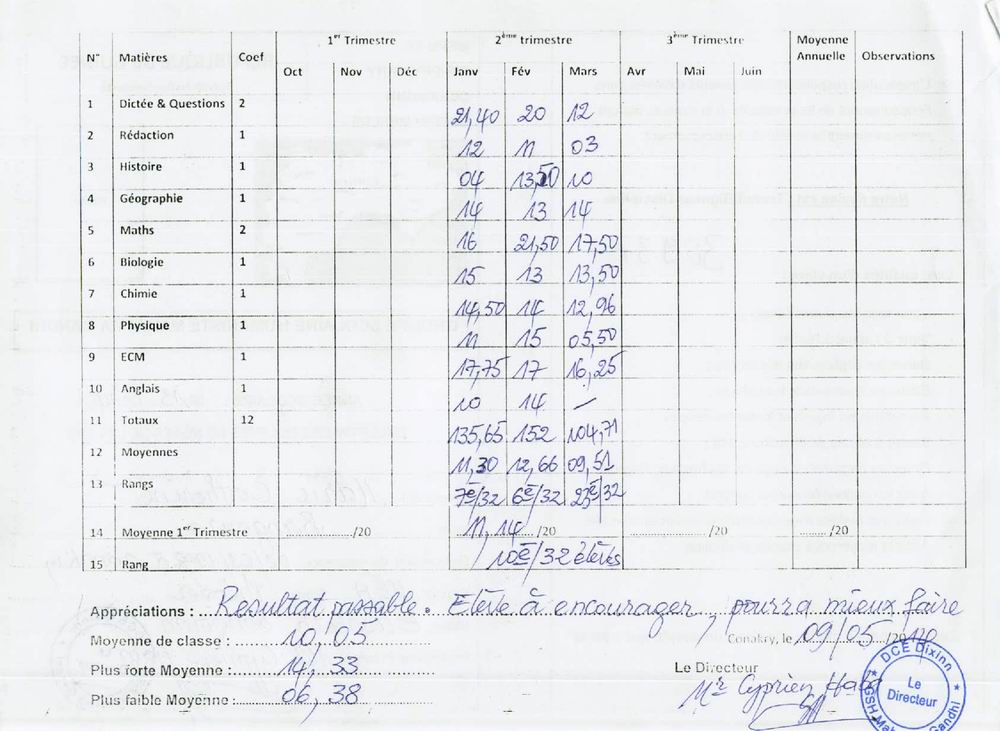 1er Trimestre 2ème trimestre 3ème Trimestre Moyenne Annuelle Observations
N° Matières Coef Oct Nov Déc Janv Fév Mars Avr Mai Juin
1 Dictée & Questions 2 21,40 20 12
2 Rédaction 1 12 11 03
3 Histoire 1 04 13,50 10
4 Géographie 1 14 13 14
5 Maths 2 16 21,50 17,50
6 Biologie 1 15 13 13,50
7 Chimie 1 14,50 14 12,96
8 Physique 1 11 15 05,50
9 ECM 1 17,75 17 16,25
10 Anglais 1 10 14 —
11 Totaux 12 135,65 152 104,71
12 Moyennes 11,30 12,66 09,51
13 Rangs 7e/32 6e/32 23e/32
14 Moyenne 1er Trimestre ............/20 11,14 /20 ............/20 ....../20
15 Rang 10e/32 élèves
Appréciations : Resultat passable. Elève à encourager, pourra mieux faire
Moyenne de classe : 10,05 Conakry, le 09/05/20
Plus forte Moyenne : 14,33 Le Directeur
Plus faible Moyenne : 06,38 Mr Cyprien Haba
DCE Dixinn
Le
Directeur
Gandhi